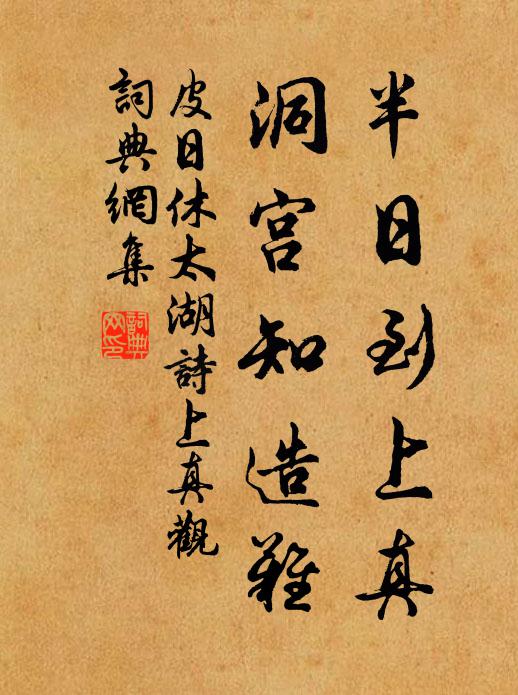 半日到上真
洞宫知造難
皮日休太湖詩上真觀
詞典網集
詞典網印